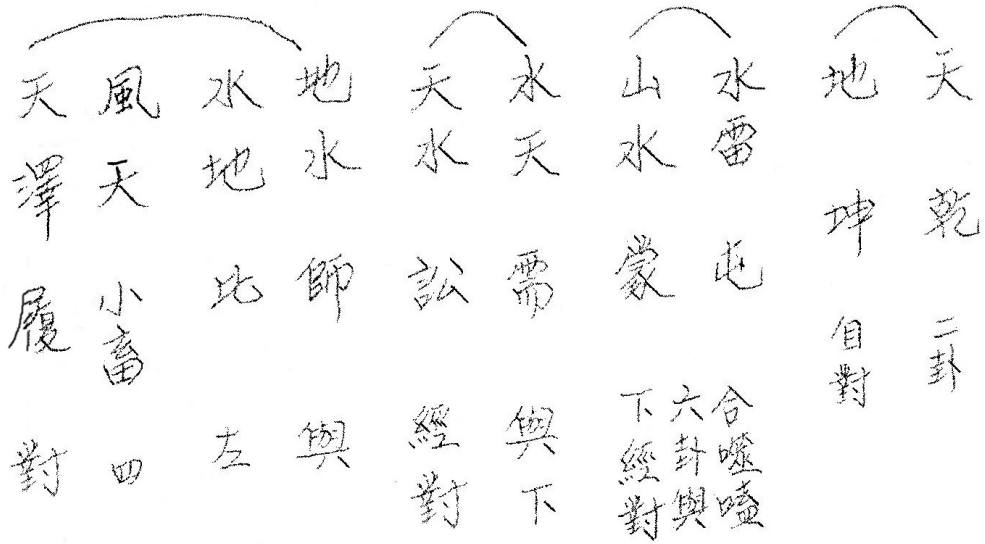 天乾二卦
地坤自對
水雷屯合噬嗑
六卦與
山水蒙下經對
水天需與下
天水訟經對
地水師與
水地比左
風天小畜四
天澤履對